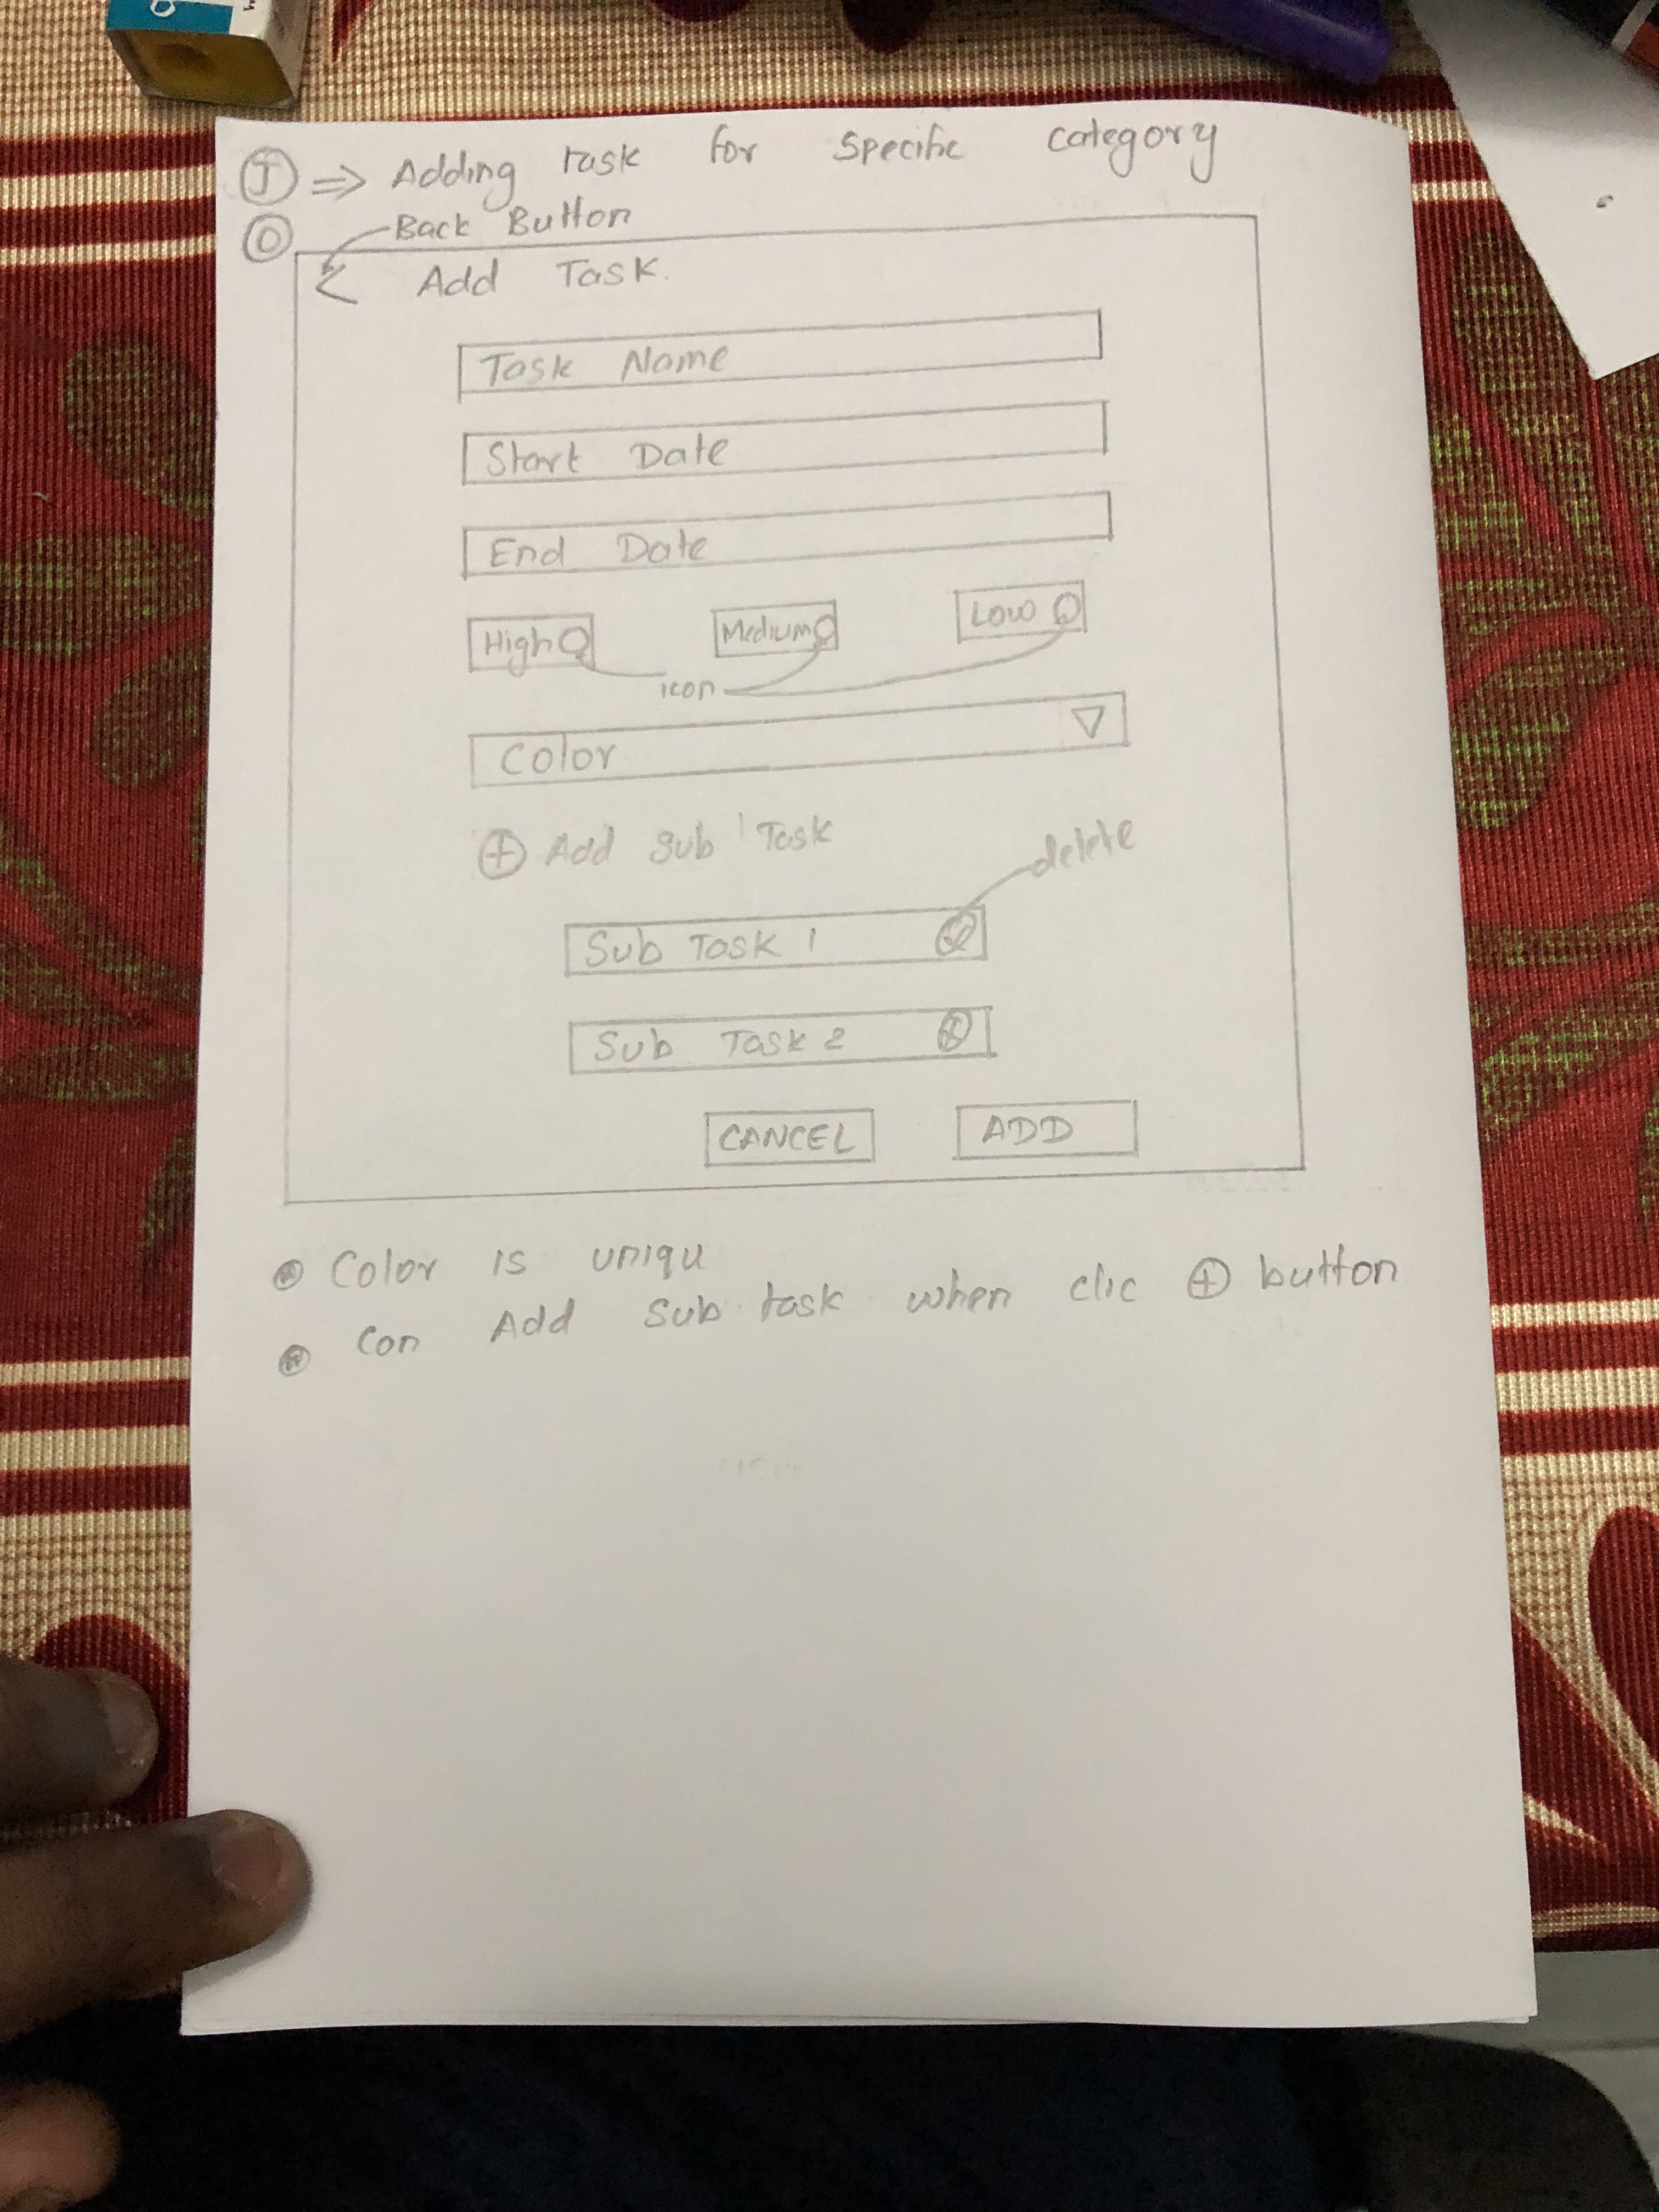 J ⇒ Adding task for specific category
Back Button
< Add Task.
Task Name
Start Date
End Date
High Medium Low
icon
Color ▽
⊕ Add Sub Task
delete
Sub Task 1
Sub Task 2
CANCEL ADD
Color is uniqu
Can Add Sub task when clic ⊕ button